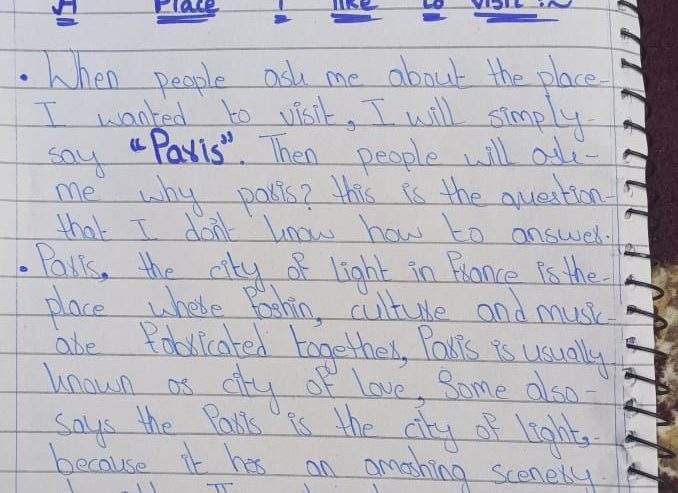 A Place I like to visit :~
• When people ask me about the place-
I wanted to visit, I will simply-
say "Paris". Then people will ask-
me why paris? this is the question-
that I don't know how to answer.
• Paris, the city of light in France is the-
place where Fashin, culture and music-
are fabricated together, Paris is usually
known as city of love, Some also-
says the Paris is the city of light,-
because it has an amashing scenery.